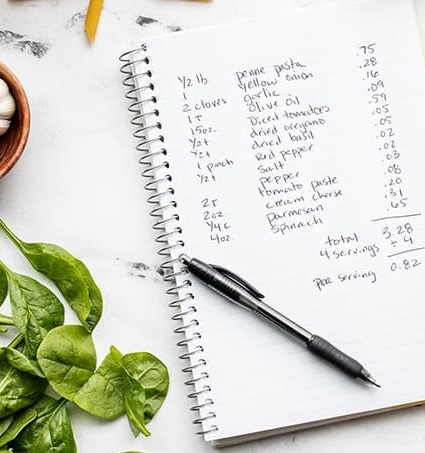 1/2 lb penne pasta .75
1 yellow onion .28
2 cloves garlic .16
1T olive oil .09
15oz. Diced tomatoes .59
1/2t dried oregano .05
1/2t dried basil .05
1 pinch Red pepper .02
1/2t Salt .02
pepper .03
2T tomato paste .08
2oz. cream cheese .20
1/4c parmesan .31
4oz. spinach .65
total 3.28
4 servings ÷ 4
per serving 0.82